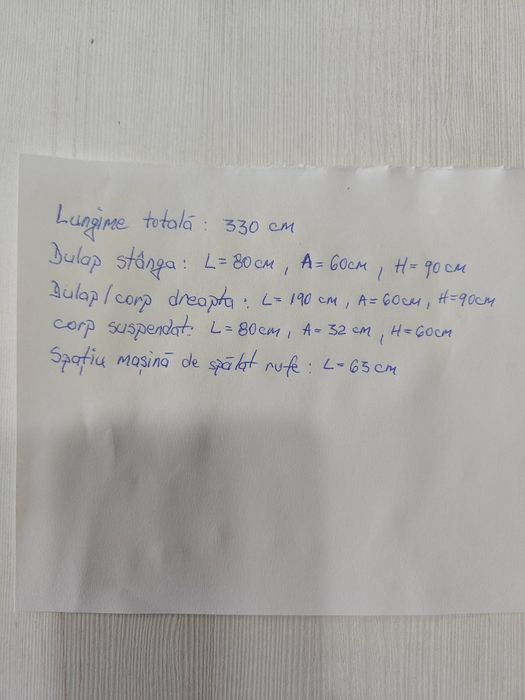 Lungime totală : 330 cm
Dulap stânga : L = 80 cm , A = 60 cm , H = 90 cm
Dulap / corp dreapta : L = 190 cm , A = 60 cm , H = 90 cm
corp suspendat : L = 80 cm , A = 32 cm , H = 60 cm
Spațiu mașină de spălat rufe : L = 63 cm